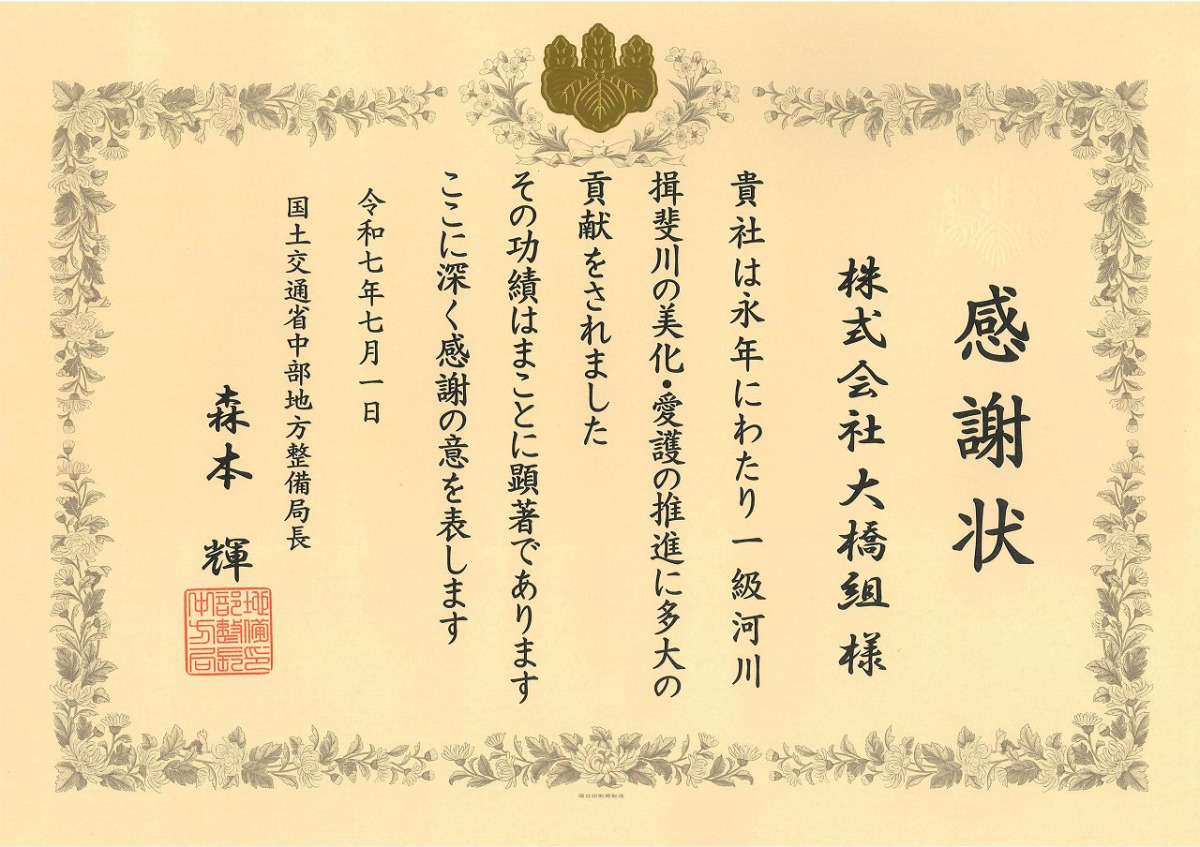 感謝状
株式会社大橋組 様
貴社は永年にわたり一級河川
揖斐川の美化・愛護の推進に多大の
貢献をされました
その功績はまことに顕著であります
ここに深く感謝の意を表します
令和七年七月一日
国土交通省中部地方整備局長
森本 輝